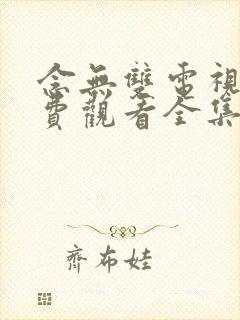 念無雙電視
費觀看全集
齊布娃